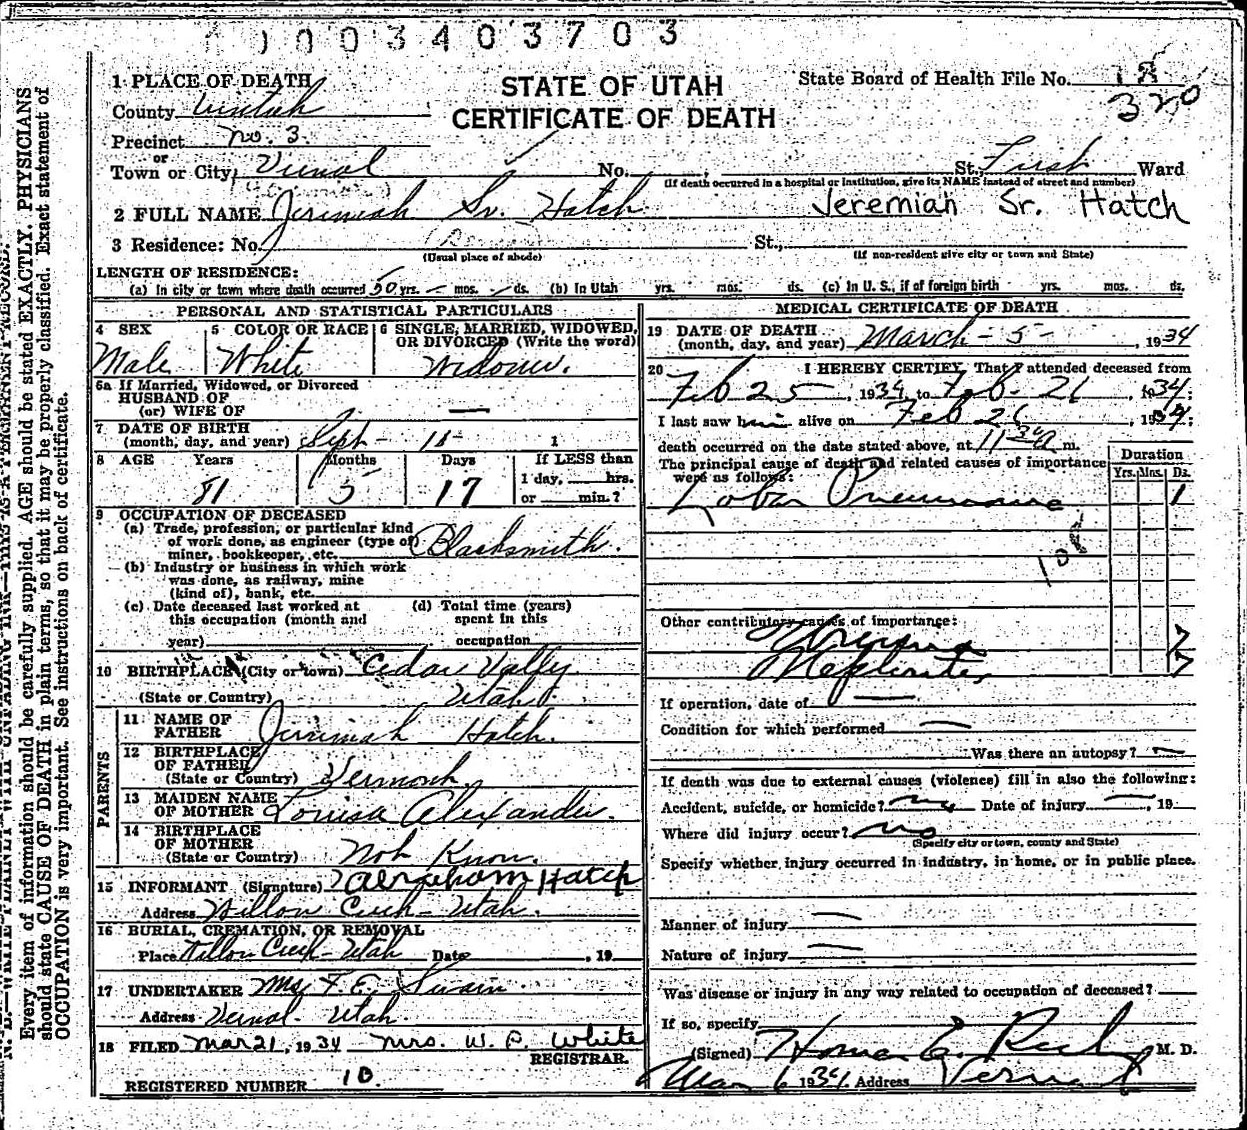 1003403703
1 PLACE OF DEATH
STATE OF UTAH
CERTIFICATE OF DEATH
State Board of Health File No. 18
320
County Uintah
Precinct No. 3.
or
Town or City Vernal No. , St. First Ward
(If death occurred in a hospital or institution, give its NAME instead of street and number)
2 FULL NAME Jerimiah Sr. Hatch Jeremiah Sr. Hatch
3 Residence: No. St.,
(Usual place of abode) (If non-resident give city or town and State)
LENGTH OF RESIDENCE:
(a) In city or town where death occurred 50 yrs. – mos. – ds. (b) In Utah yrs. mos. ds. (c) In U. S., if of foreign birth yrs. mos. ds.
PERSONAL AND STATISTICAL PARTICULARS
4 SEX 5 COLOR OR RACE 6 SINGLE, MARRIED, WIDOWED, OR DIVORCED (Write the word)
Male White Widower.
6a If Married, Widowed, or Divorced
HUSBAND OF
(or) WIFE OF —
7 DATE OF BIRTH
(month, day, and year) Sept – 18 – 1
8 AGE Years Months Days If LESS than
1 day, hrs.
81 5 17 or min.?
9 OCCUPATION OF DECEASED
(a) Trade, profession, or particular kind
of work done, as engineer (type of
miner, bookkeeper, etc. Blacksmith.
(b) Industry or business in which work
was done, as railway, mine
(kind of), bank, etc.
(c) Date deceased last worked at (d) Total time (years)
this occupation (month and spent in this
year) occupation
10 BIRTHPLACE (City or town) Cedar Vally
(State or Country) Utah
PARENTS
11 NAME OF
FATHER Jerimiah Hatch.
12 BIRTHPLACE
OF FATHER
(State or Country) Vermont.
13 MAIDEN NAME
OF MOTHER Louisa Alexander.
14 BIRTHPLACE
OF MOTHER
(State or Country) Not Know.
15 INFORMANT (Signature) Abraham Hatch
Address Willow Creek – Utah.
16 BURIAL, CREMATION, OR REMOVAL
Place Willow Creek – Utah Date , 19
17 UNDERTAKER F. E. Swain.
Address Vernal – Utah.
18 FILED Mar 21, 1934 Mrs. W. P. White
REGISTRAR.
REGISTERED NUMBER 10
MEDICAL CERTIFICATE OF DEATH
19 DATE OF DEATH
(month, day, and year) March – 5 – , 1934
20 I HEREBY CERTIFY, That I attended deceased from
Feb 25 , 1934, to Feb. 26 , 1934;
I last saw him alive on Feb 26 , 1934;
death occurred on the date stated above, at 11 30 a m.
The principal cause of death and related causes of importance
were as follows:
Duration
Yrs. Mns. Ds.
Lobar Pneumonia 1
108
Other contributory causes of importance:
Uremia 7
Nephritis 7
If operation, date of —
Condition for which performed —
Was there an autopsy? —
If death was due to external causes (violence) fill in also the following:
Accident, suicide, or homicide? no Date of injury — , 19
Where did injury occur? no
(Specify city or town, county and State)
Specify whether injury occurred in industry, in home, or in public place.
Manner of injury —
Nature of injury —
Was disease or injury in any way related to occupation of deceased?
If so, specify
(Signed) Homer E. Rich M. D.
Mar 6 1934 Address Vernal
Every item of information should be carefully supplied. AGE should be stated EXACTLY. PHYSICIANS
should state CAUSE OF DEATH in plain terms, so that it may be properly classified. Exact statement of
OCCUPATION is very important. See instructions on back of certificate.